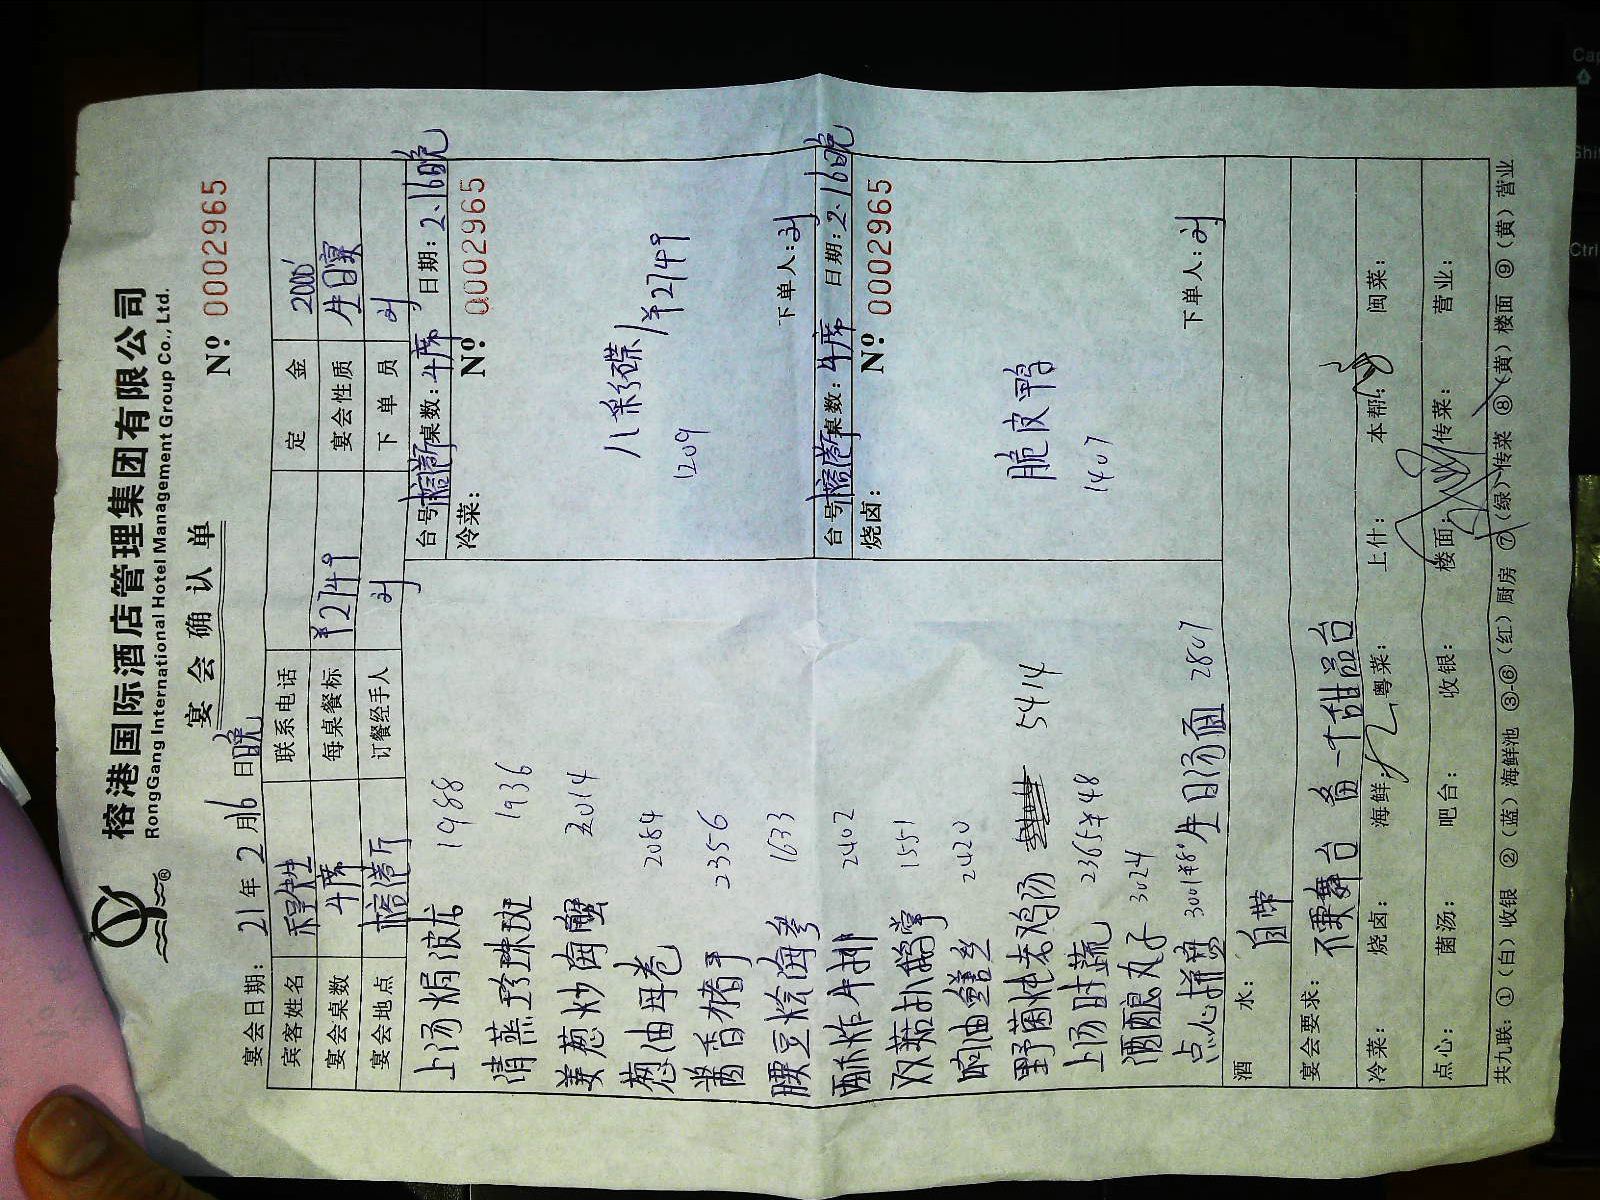 榕港国际酒店管理集团有限公司
RongGang International Hotel Management Group Co., Ltd.
宴会确认单
宴会日期：21年2月16日晚
Nº 0002965
宾客姓名 联系电话 定金 2000
宴会桌数 4席 每桌餐标 ¥2749 宴会性质 生日宴
宴会地点 榕港厅 订餐经手人 刘 下单员 刘
上汤焗波龙 1988
清蒸珍珠斑 1936
姜葱炒海蟹 2014
葱油母卷 2084
酱香猪手 2356
腰豆烩海参 1633
酥炸牛排 2402
双菇扒鹅掌 1551
响油鳝丝 2420
野菌炖老鸡汤 5414
上汤时蔬 2365¥48
酒酿丸子 3024
点心拼盘 3001¥8' 生日汤面 2807
台号 榕港厅 桌数：4席 日期：2.16晚
冷菜： Nº 0002965
八彩碟 ¥2749
1209
下单人：刘
台号 榕港厅 桌数：4席 日期：2.16晚
烧卤： Nº 0002965
脆皮鸭
1407
下单人：刘
酒水： 自带
宴会要求： 不要舞台 备一个甜品台
冷菜： 烧卤： 海鲜： 粤菜： 上什： 本帮： 闽菜：
点心： 菌汤： 吧台： 收银： 楼面： 传菜： 营业：
共九联：①（白）收银 ②（蓝）海鲜池 ③-⑥（红）厨房 ⑦（绿）传菜 ⑧（黄）楼面 ⑨（黄）营业
Cap
Shift
Ctrl